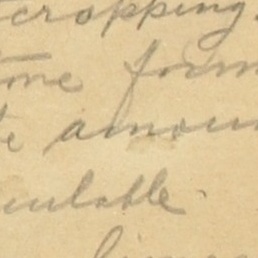 cropping.
me form
te amoun
ulable.